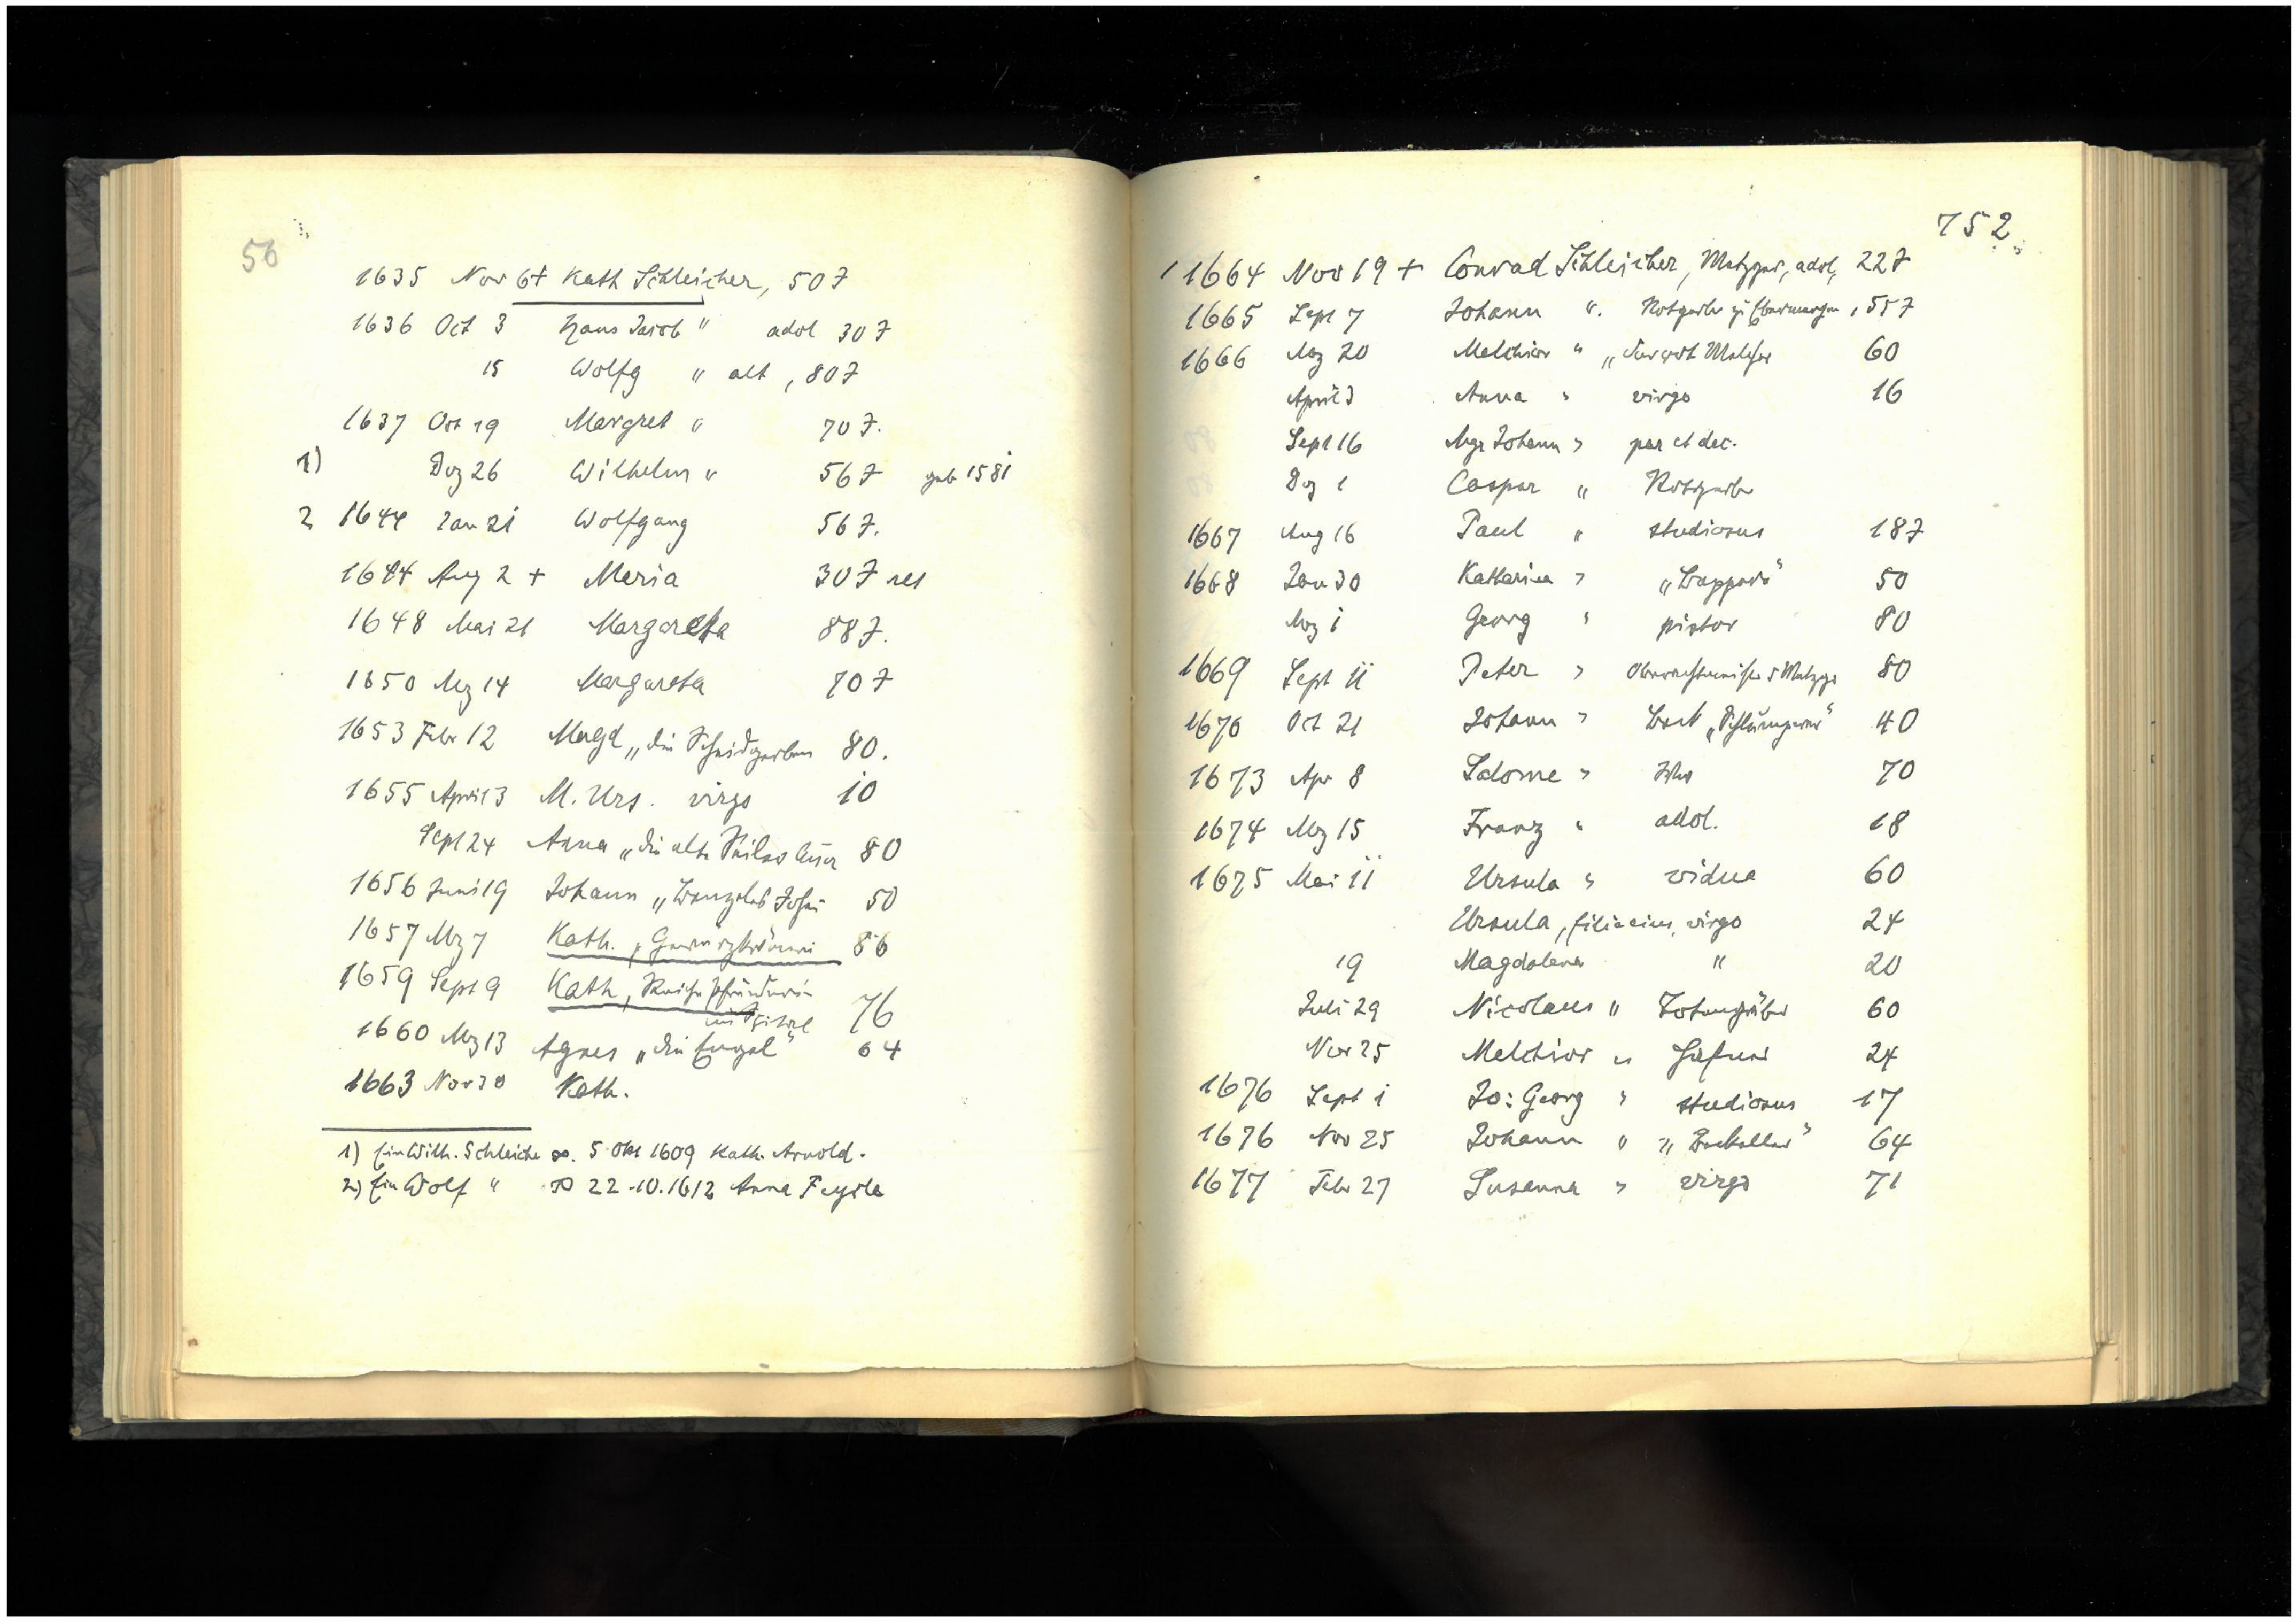 56
1635 Nov 6 + Kath Schleicher, 50 J
1636 Oct 3 Hans Jacob " adol 30 J
15 Wolfg " alt, 80 J
1637 Oct 19 Margret " 70 J.
1) Dez 26 Wilhelm " 56 J geb 1581
2 1644 Jan 21 Wolfgang 56 J.
1644 Aug 2 + Maria 30 J
1648 Mai 21 Margareta 88 J.
1650 Mrz 14 Margareta 70 J
1653 Febr 12 Magd „die 80.
1655 April 3 M. Urs. virgo 10
Sept 24 Anna „die alte 80
1656 Juni 19 Johann 50
1657 Mrz 7 Kath. „Gewürzkrämeri 86
1659 Sept 9 Kath, Reiche Pfründnerin
im Spital 76
1660 Mrz 13 Agnes „die Engel" 64
1663 Nov 30 Kath.
1) Ein Wilh. Schleicher ∞. 5 Okt 1609 Kath. Arnold.
2) Ein Wolf " ∞ 22.10.1612 Anna
752
1664 Nov 19 + Conrad Schleicher, Metzger, adol, 22 J
1665 Sept 7 Johann ". Rotgerber zu , 55 J
1666 Mrz 20 Melchior " 60
April 3 Anna " virgo 16
Sept 16 Mgr Johann " par et dec.
Dez 1 Caspar " Rotgerber
1667 Aug 16 Paul " studiosus 18 J
1668 Jan 30 Katharina " 50
Mrz 1 Georg " pistor 80
1669 Sept 11 Peter " Metzger 80
1670 Oct 21 Johann " 40
1673 Apr 8 Salome " 70
1674 Mrz 15 Franz " adol. 18
1675 Mai 11 Ursula " vidua 60
Ursula, filia eius, virgo 24
19 Magdalena " 20
Juli 29 Nicolaus " Totengräber 60
Nov 25 Melchior " Hafner 24
1676 Sept 1 Jo: Georg " studiosus 17
1676 Nov 25 Johann " 64
1677 Febr 27 Susanna " virgo 71